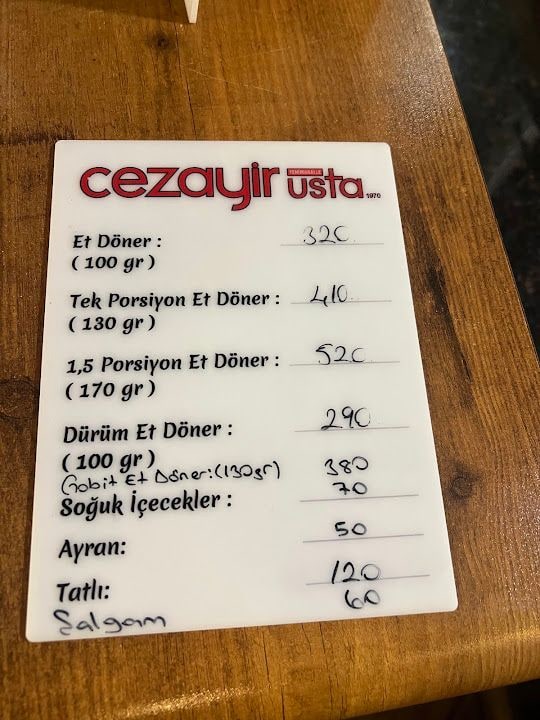 cezayir YENİMAHALLE usta 1970
Et Döner : 320
( 100 gr )
Tek Porsiyon Et Döner : 410
( 130 gr )
1,5 Porsiyon Et Döner : 520
( 170 gr )
Dürüm Et Döner : 290
( 100 gr )
Gobit Et Döner:(130gr) 380
Soğuk İçecekler : 70
Ayran: 50
Tatlı: 120
Şalgam 60